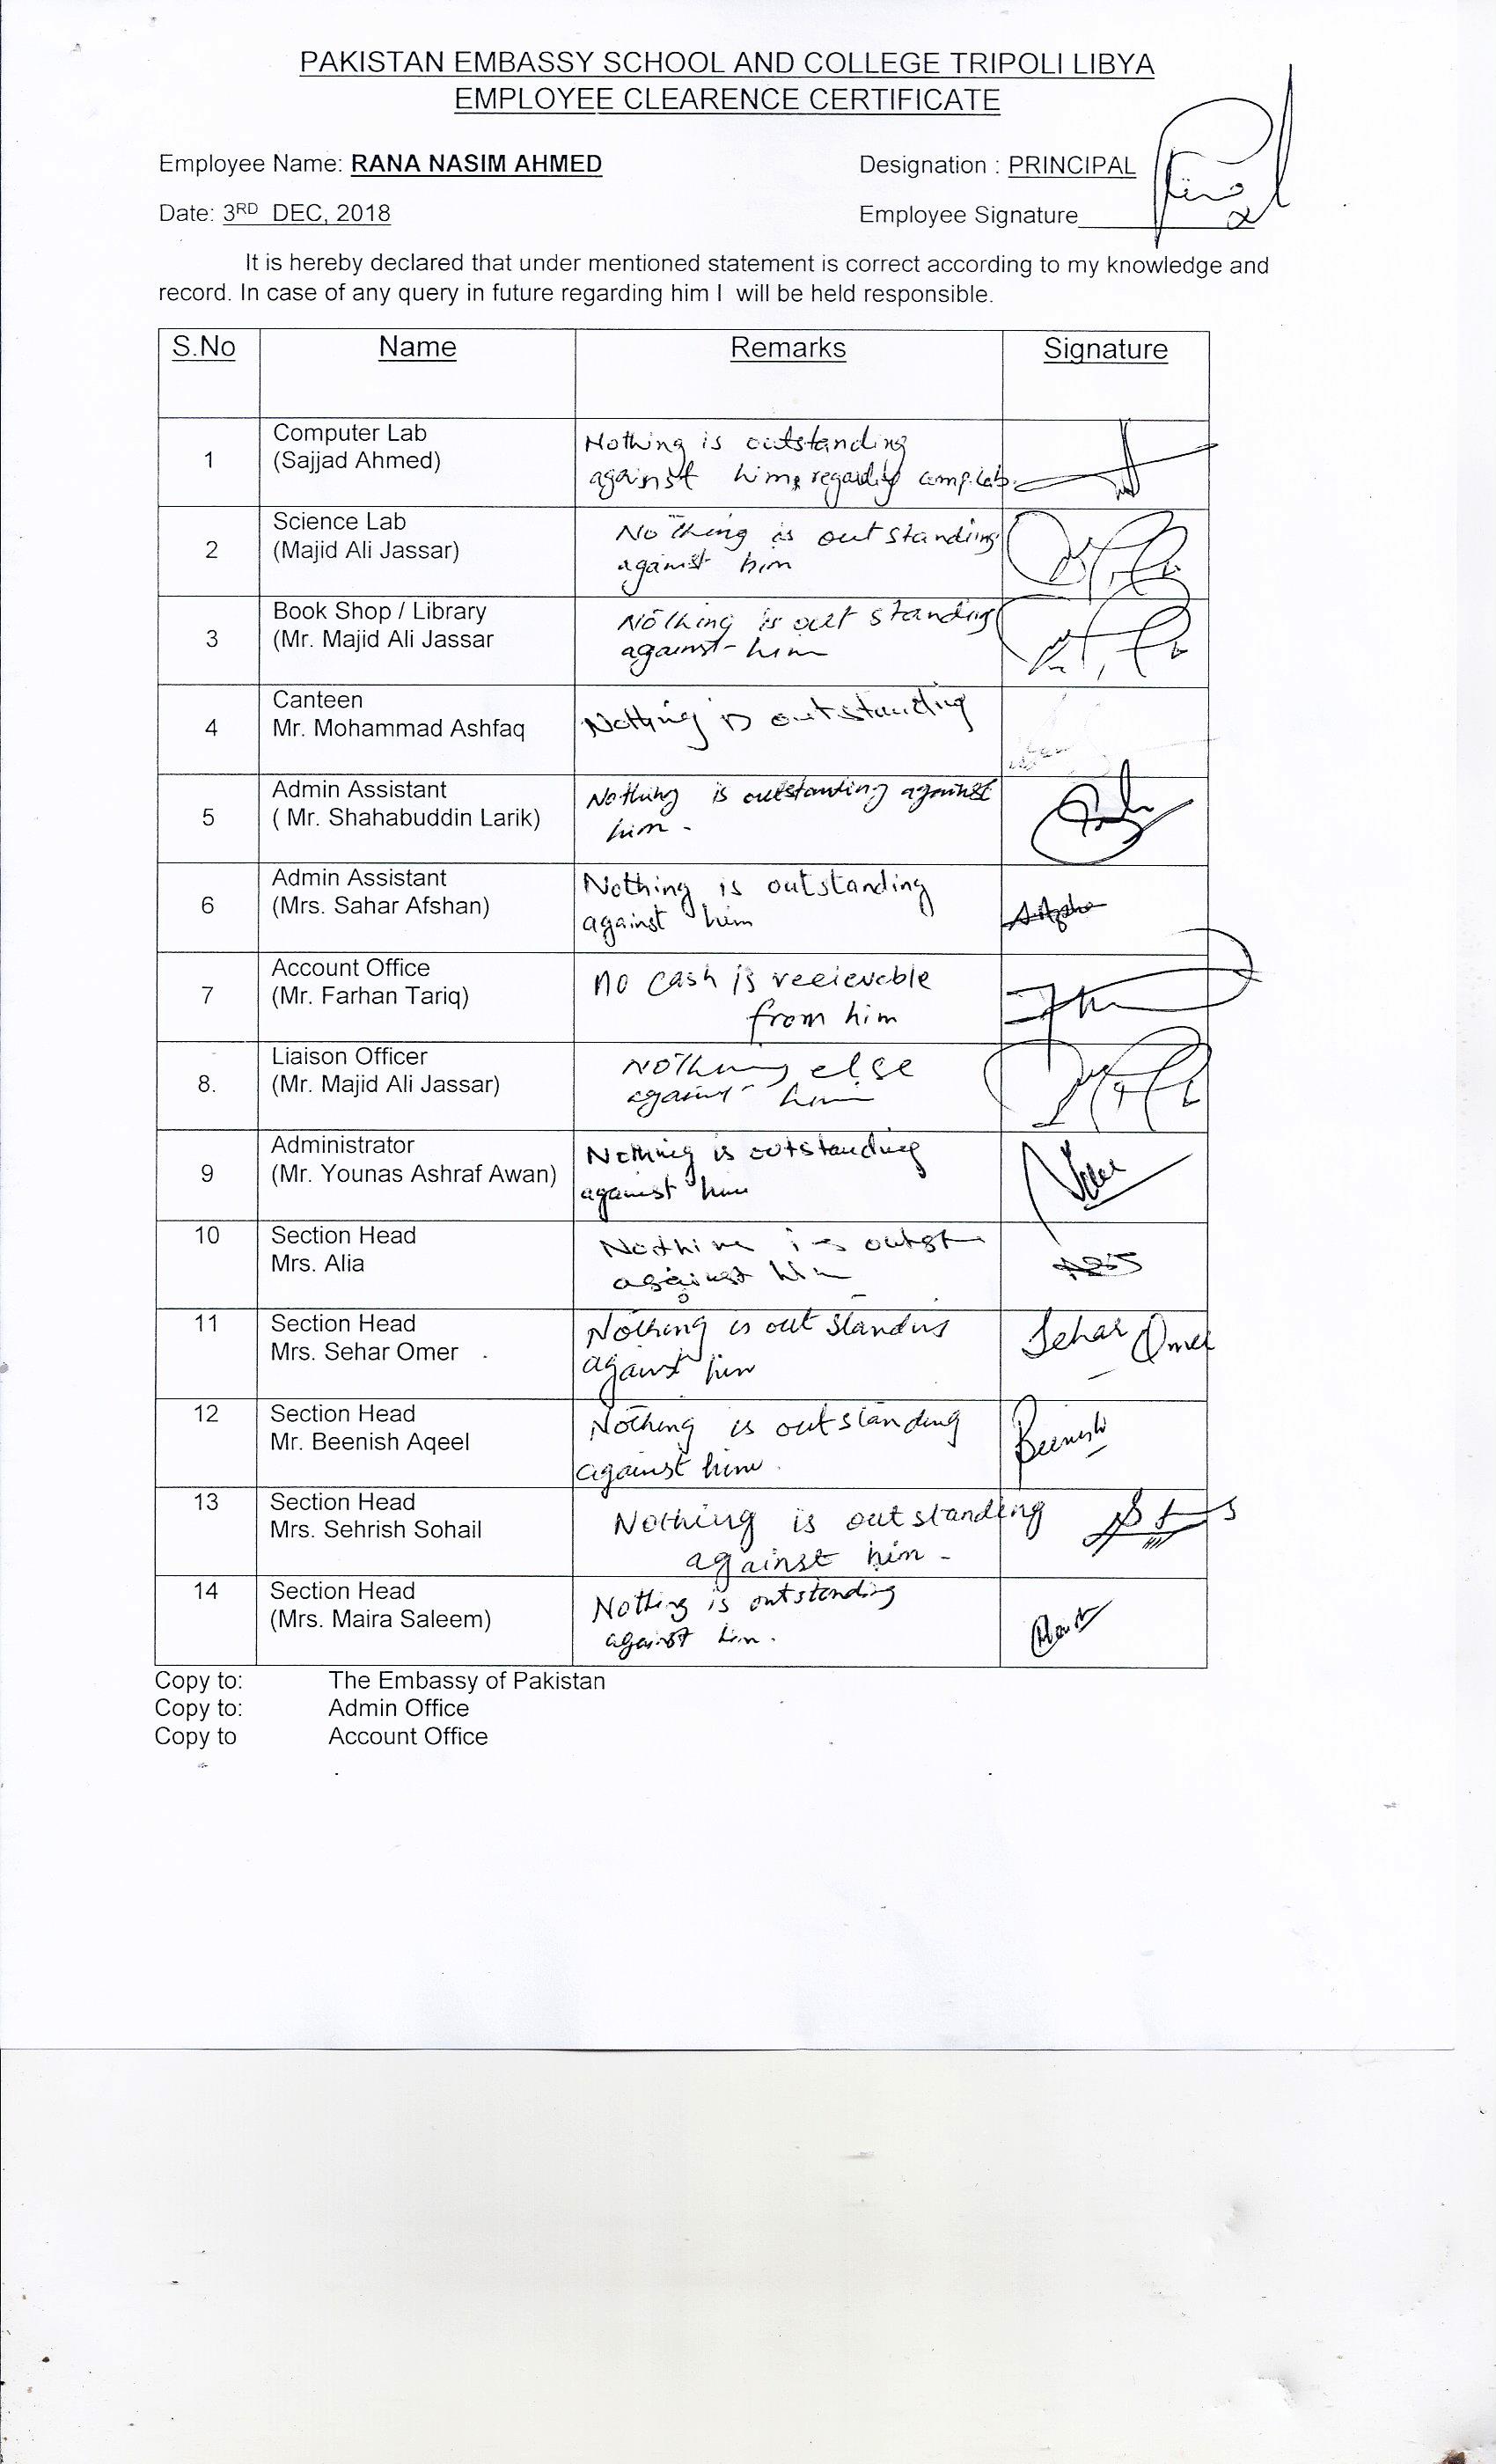 PAKISTAN EMBASSY SCHOOL AND COLLEGE TRIPOLI LIBYA
EMPLOYEE CLEARENCE CERTIFICATE
Employee Name: RANA NASIM AHMED Designation : PRINCIPAL
Date: 3RD DEC, 2018 Employee Signature
It is hereby declared that under mentioned statement is correct according to my knowledge and
record. In case of any query in future regarding him I will be held responsible.
S.No Name Remarks Signature
1
Computer Lab
(Sajjad Ahmed)
Nothing is outstanding
against him, regarding comp. Lab.
2
Science Lab
(Majid Ali Jassar)
Nothing is outstanding
against him
3
Book Shop / Library
(Mr. Majid Ali Jassar
Nothing is out standing
against him
4
Canteen
Mr. Mohammad Ashfaq
Nothing is outstanding
5
Admin Assistant
( Mr. Shahabuddin Larik)
Nothing is outstanding against
him -
6
Admin Assistant
(Mrs. Sahar Afshan)
Nothing is outstanding
against him
7
Account Office
(Mr. Farhan Tariq)
no cash is recievable
from him
8.
Liaison Officer
(Mr. Majid Ali Jassar)
Nothing else
against him
9
Administrator
(Mr. Younas Ashraf Awan)
Nothing is outstanding
against him
10
Section Head
Mrs. Alia
Nothing is
against him
11
Section Head
Mrs. Sehar Omer
Nothing is out standing
against him
Sehar Omer
12
Section Head
Mr. Beenish Aqeel
Nothing is outstanding
against him.
Beenish
13
Section Head
Mrs. Sehrish Sohail
Nothing is outstanding
against him -
14
Section Head
(Mrs. Maira Saleem)
Nothing is outstanding
against him.
Copy to: The Embassy of Pakistan
Copy to: Admin Office
Copy to Account Office